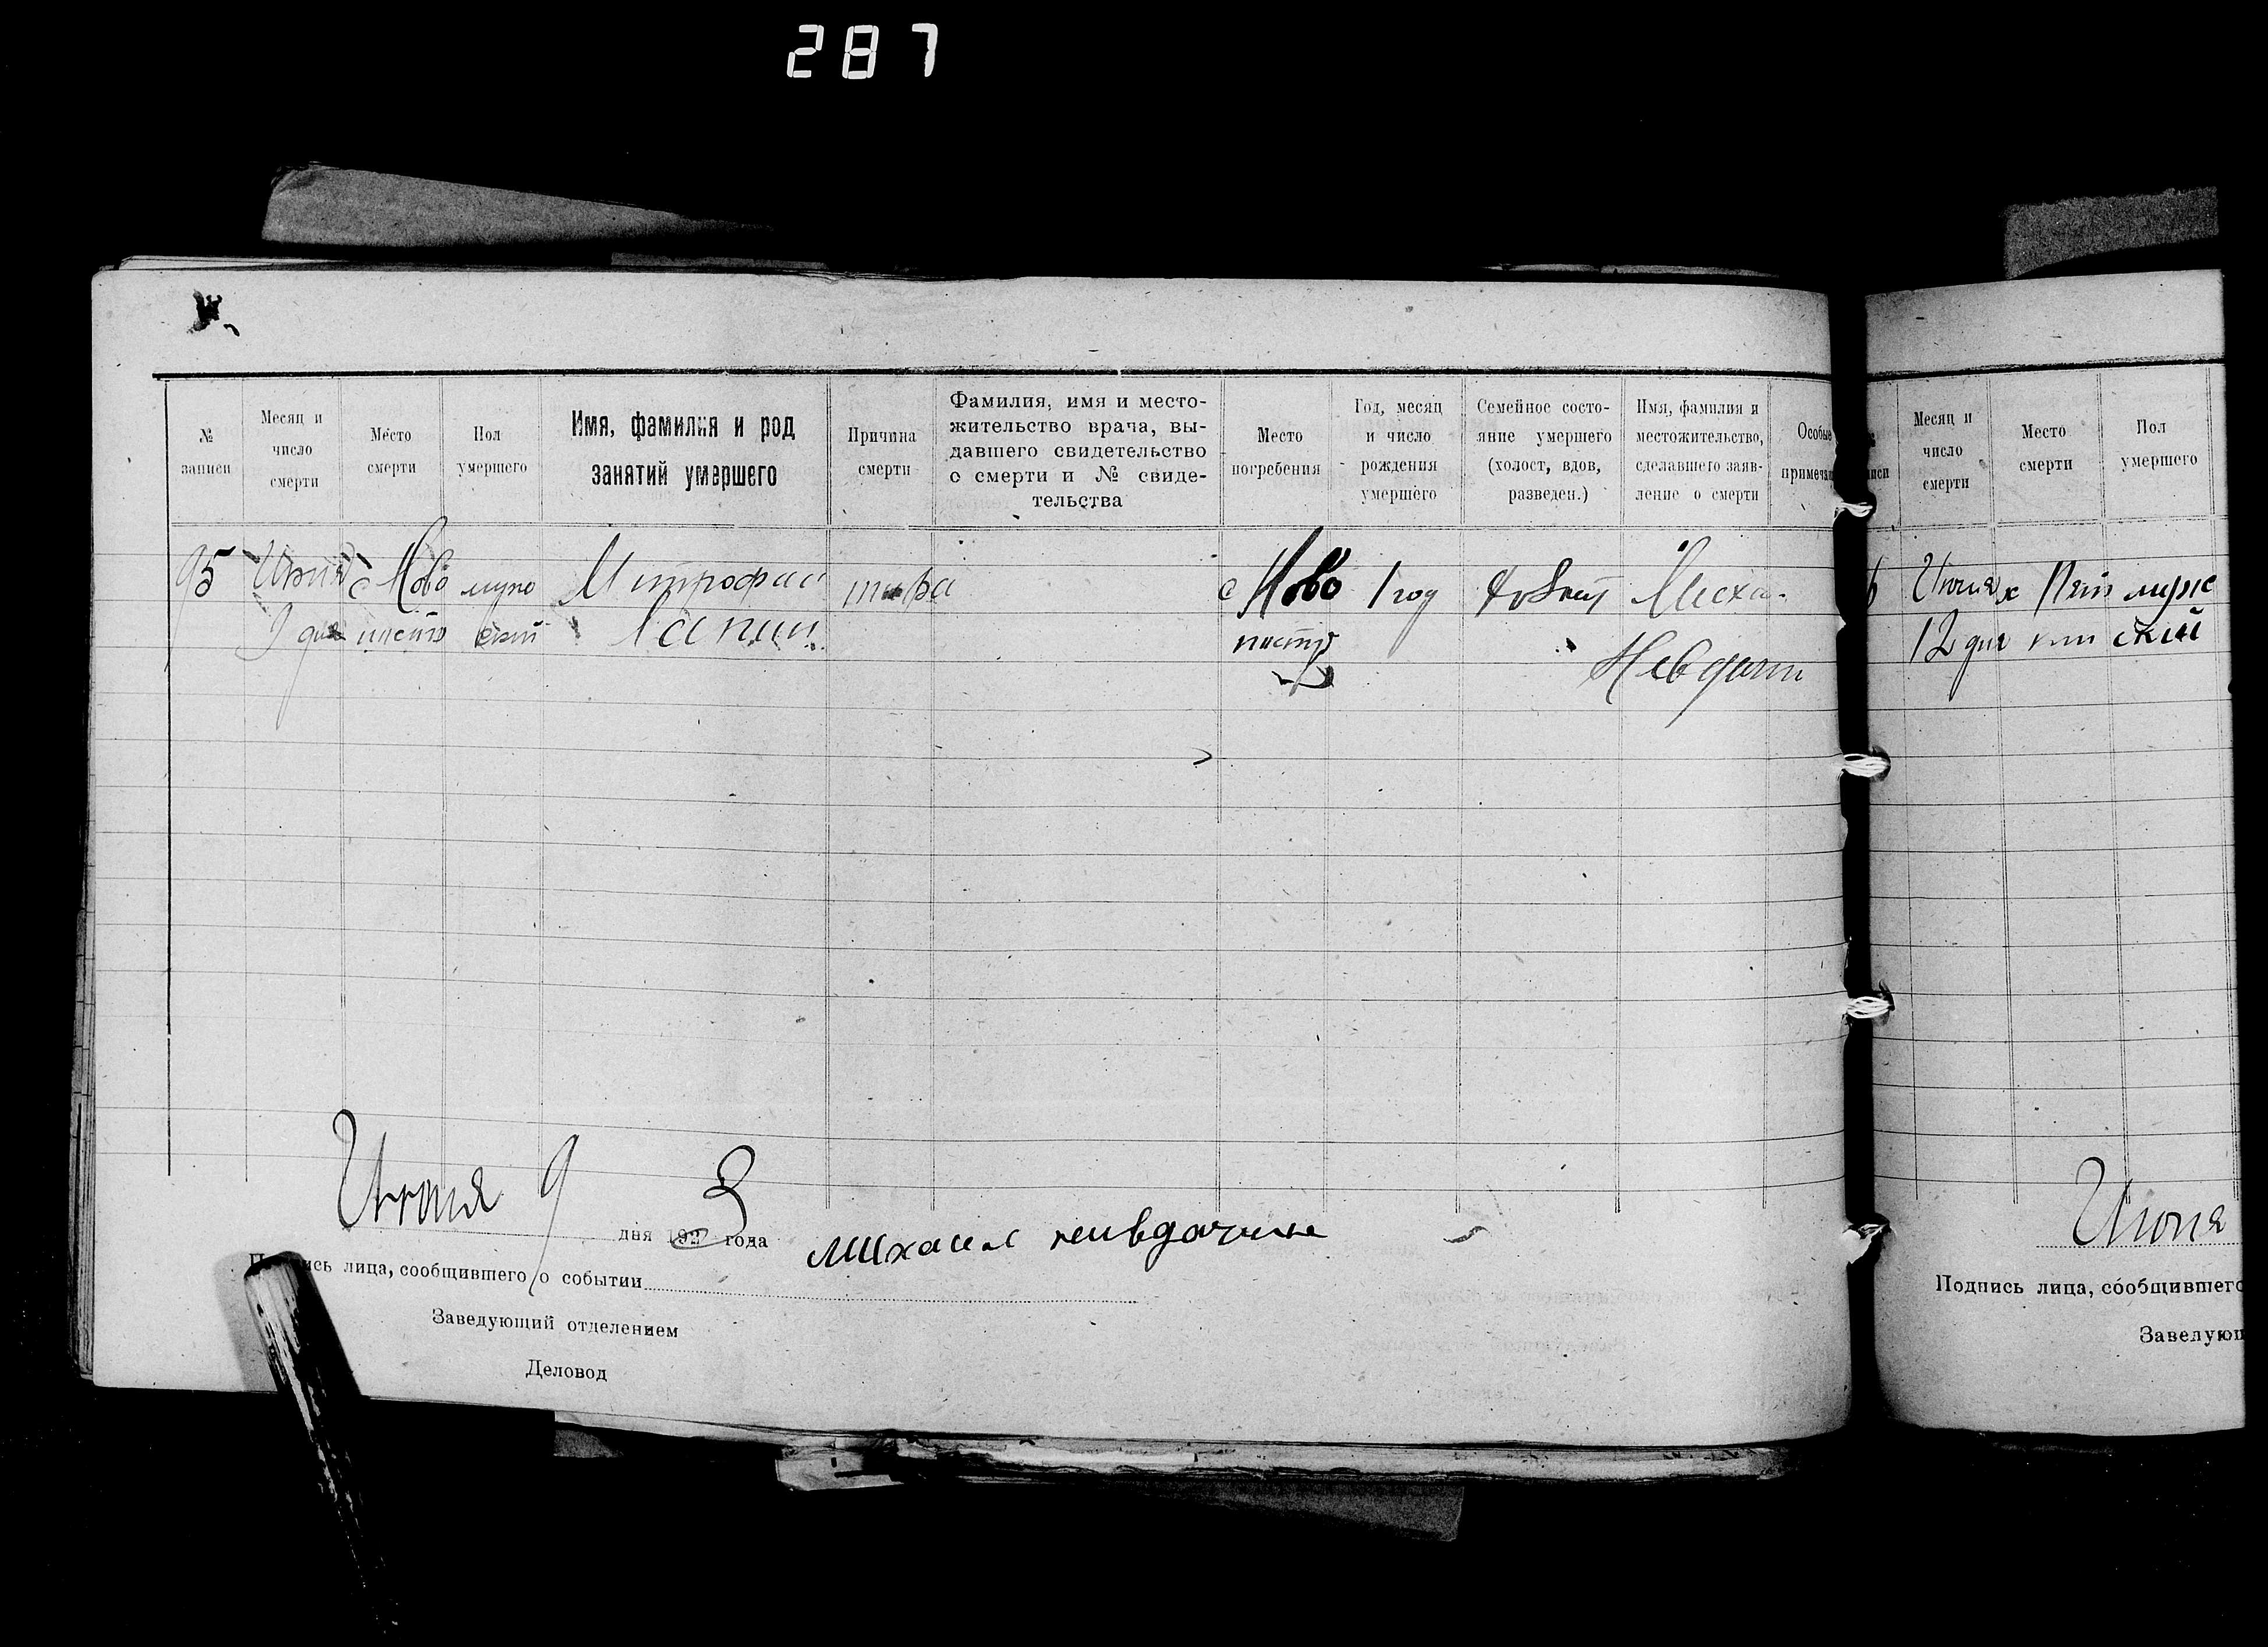 287
№ записи
Месяц и число смерти
Место смерти
Пол умершего
Имя, фамилия и род занятий умершего
Причина смерти
Фамилия, имя и место-
жительство врача, вы-
давшего свидетельство
о смерти и № свиде-
тельства
Место погребения
Год, месяц и число рождения умершего
Семейное состо-
яние умершего
(холост, вдов,
разведен.)
Имя, фамилия и
местожительство,
сделавшего заяв-
ление о смерти
Особые
примеча
95 Июня с Ново муж Митрофан с Ново 1 год
9 дня ский Лапин
Июня 9 дня 1923 года
Михаил
Подпись лица, сообщившего о событии
Заведующий отделением
Деловод
иси
Месяц и число смерти
Место смерти
Пол умершего
6 Июня муж
12 дня ский
Июня
Подпись лица, сообщившего
Заведующ